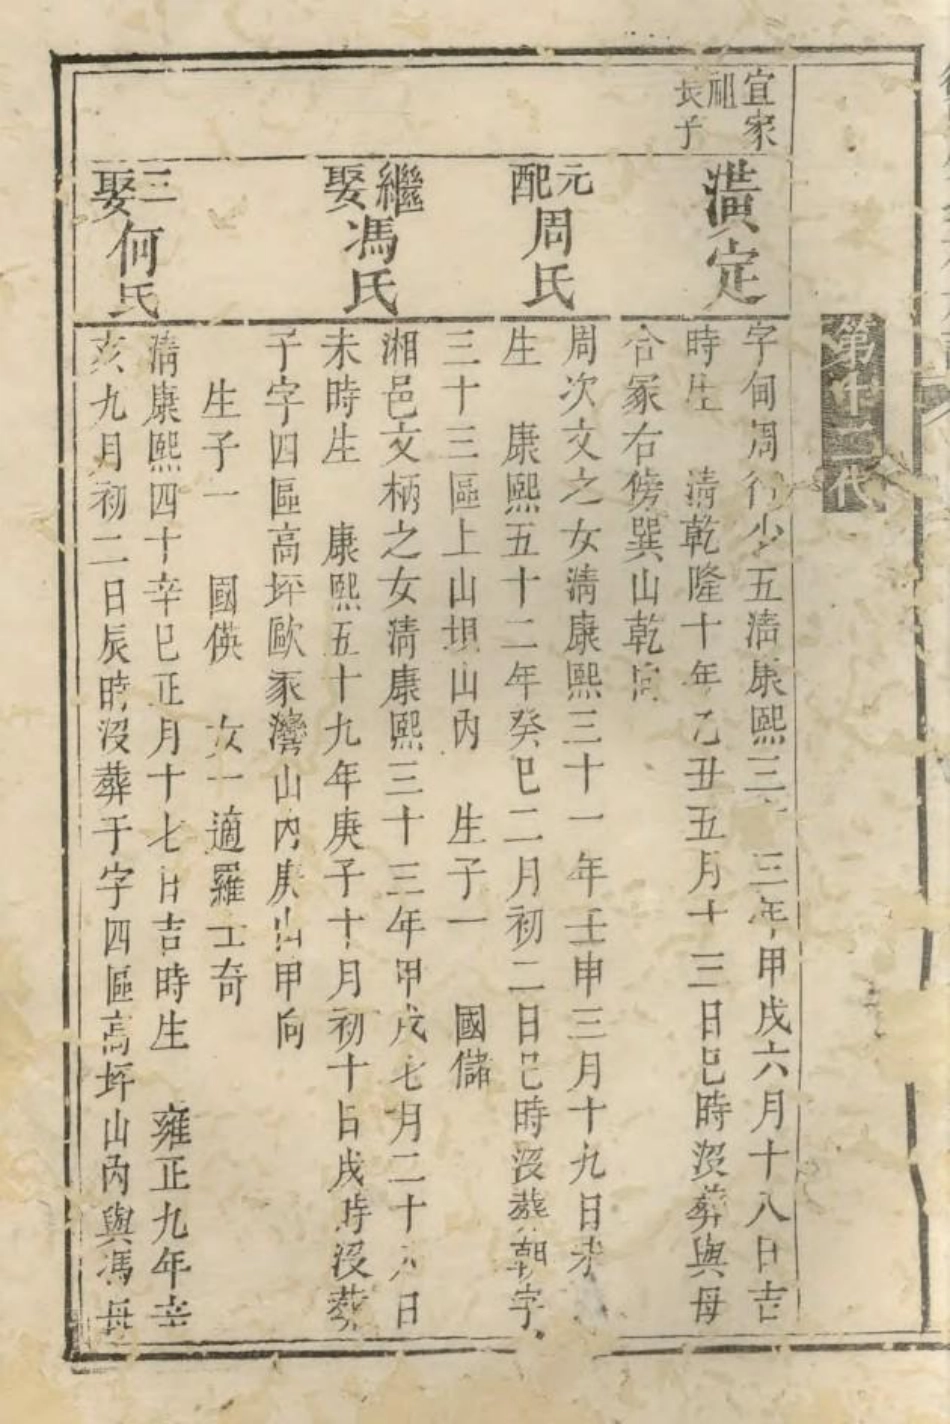 第十三代
宜家
祖
長子
潢定
字甸周行少五清康熙三十三年甲戌六月十八日吉
時生 清乾隆十年乙丑五月十三日巳時沒葬與母
合冢右傍巽山乾向
元配周氏
周次文之女清康熙三十一年壬申三月十九日未
生 康熙五十二年癸巳二月初二日巳時沒葬朝字
三十三區上山坦山內 生子一 國儲
繼娶馮氏
湘邑文柄之女清康熙三十三年甲戌七月二十八日
未時生 康熙五十九年庚子十月初十日戌時沒葬
子字四區高坪歐家灣山內庚山甲向
生子一 國偀 女一適羅士奇
三娶何氏
清康熙四十辛巳正月十七日吉時生 雍正九年辛
亥九月初二日辰時沒葬于字四區高坪山內與馮母